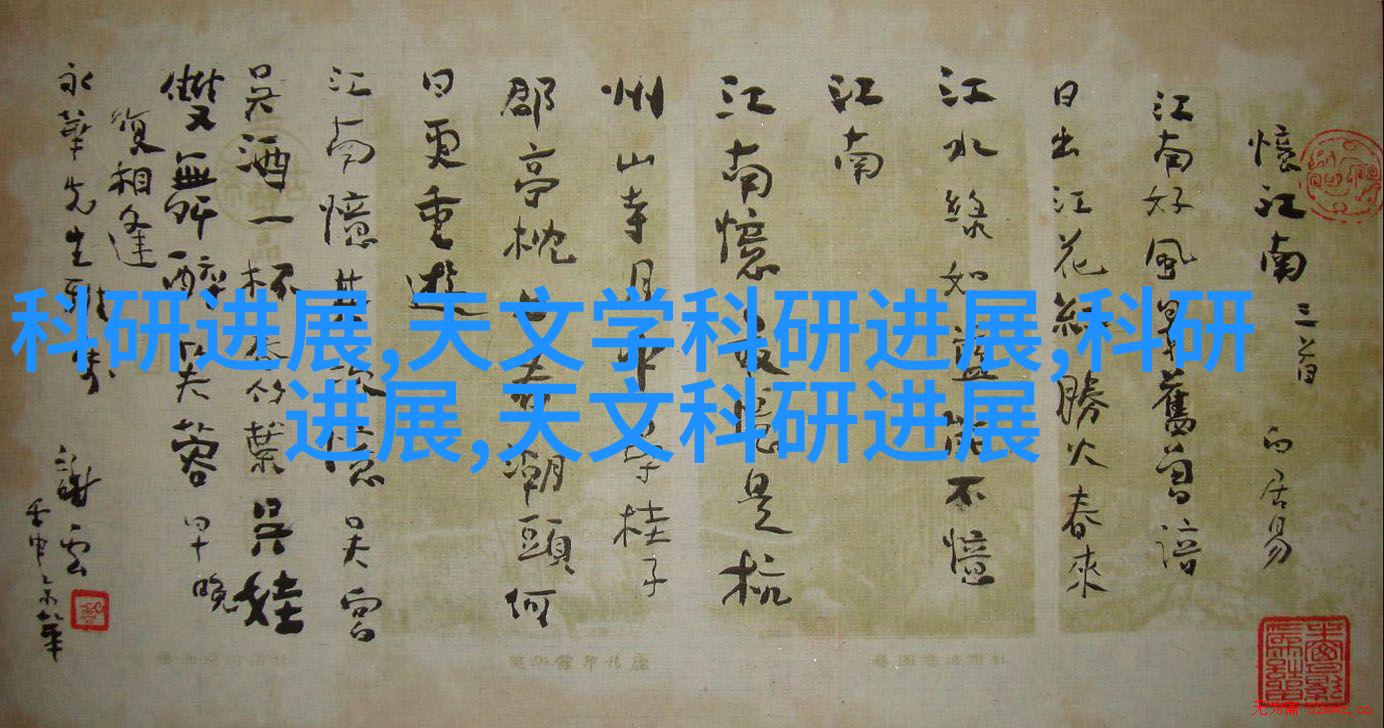 憶江南 三首 白居易
江南好風景舊曾諳
日出江花紅勝火春來
江水綠如藍能不憶
江南
江南憶最憶是杭
州山寺月中尋桂子
郡亭枕上看潮頭何
日更重遊
江南憶其次憶吳宮
吳酒一杯春竹葉吳娃
雙舞醉芙蓉早晚
復相逢
永華先生雅
謝雲
壬申
科研进展,天文学科研进展,科研
进展,天文科研进展